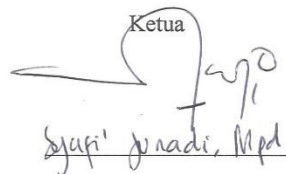 Ketua
Syafi' Junadi, Mpd